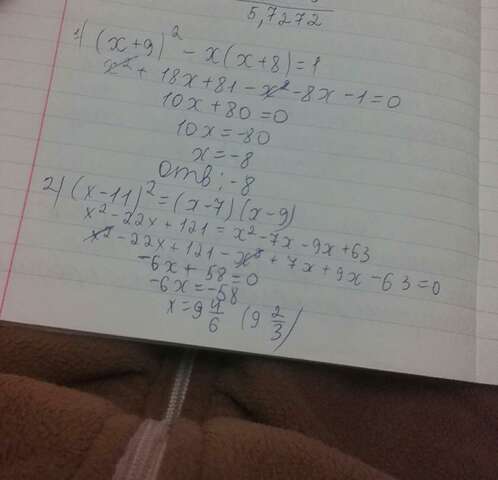 5,7272
1) (x+9)² - x(x+8)=1
x²+ 18x+81-x²-8x-1=0
10x+80=0
10x=-80
x=-8
Отв: -8
2) (x-11)²=(x-7)(x-9)
x²-22x+121=x²-7x-9x+63
x²-22x+121-x²+7x+9x-63=0
-6x+58=0
-6x=-58
x=9 4/6 (9 2/3)